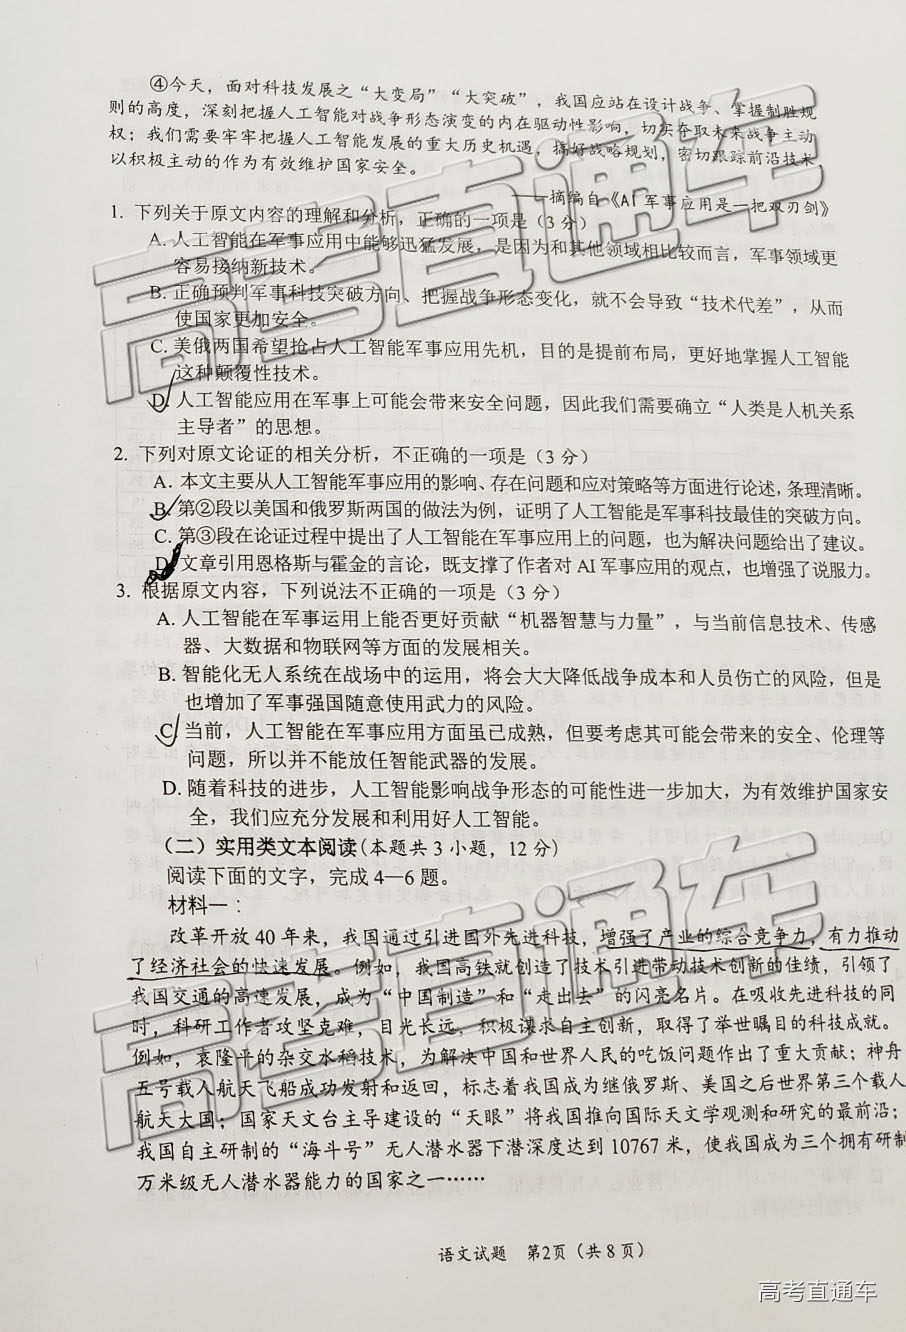 ④今天，面对科技发展之“大变局”“大突破”，我国应站在设计战争、掌握制胜规
则的高度，深刻把握人工智能对战争形态演变的内在驱动性影响，切实夺取未来战争主动
权；我们需要牢牢把握人工智能发展的重大历史机遇，搞好战略规划，密切跟踪前沿技术，
以积极主动的作为有效维护国家安全。
——摘编自《AI 军事应用是一把双刃剑》
1. 下列关于原文内容的理解和分析，正确的一项是（3 分）
A. 人工智能在军事应用中能够迅猛发展，是因为和其他领域相比较而言，军事领域更
容易接纳新技术。
B. 正确预判军事科技突破方向、把握战争形态变化，就不会导致“技术代差”，从而
使国家更加安全。
C. 美俄两国希望抢占人工智能军事应用先机，目的是提前布局，更好地掌握人工智能
这种颠覆性技术。
D. 人工智能应用在军事上可能会带来安全问题，因此我们需要确立“人类是人机关系
主导者”的思想。
2. 下列对原文论证的相关分析，不正确的一项是（3 分）
A. 本文主要从人工智能军事应用的影响、存在问题和应对策略等方面进行论述，条理清晰。
B. 第②段以美国和俄罗斯两国的做法为例，证明了人工智能是军事科技最佳的突破方向。
C. 第③段在论证过程中提出了人工智能在军事应用上的问题，也为解决问题给出了建议。
D. 文章引用恩格斯与霍金的言论，既支撑了作者对 AI 军事应用的观点，也增强了说服力。
3. 根据原文内容，下列说法不正确的一项是（3 分）
A. 人工智能在军事运用上能否更好贡献“机器智慧与力量”，与当前信息技术、传感
器、大数据和物联网等方面的发展相关。
B. 智能化无人系统在战场中的运用，将会大大降低战争成本和人员伤亡的风险，但是
也增加了军事强国随意使用武力的风险。
C. 当前，人工智能在军事应用方面虽已成熟，但要考虑其可能会带来的安全、伦理等
问题，所以并不能放任智能武器的发展。
D. 随着科技的进步，人工智能影响战争形态的可能性进一步加大，为有效维护国家安
全，我们应充分发展和利用好人工智能。
（二）实用类文本阅读（本题共 3 小题，12 分）
阅读下面的文字，完成 4—6 题。
材料一：
改革开放 40 年来，我国通过引进国外先进科技，增强了产业的综合竞争力，有力推动
了经济社会的快速发展。例如，我国高铁就创造了技术引进带动技术创新的佳绩，引领了
我国交通的高速发展，成为“中国制造”和“走出去”的闪亮名片。在吸收先进科技的同
时，科研工作者攻坚克难，目光长远，积极谋求自主创新，取得了举世瞩目的科技成就。
例如，袁隆平的杂交水稻技术，为解决中国和世界人民的吃饭问题作出了重大贡献；神舟
五号载人航天飞船成功发射和返回，标志着我国成为继俄罗斯、美国之后世界第三个载人
航天大国；国家天文台主导建设的“天眼”将我国推向国际天文学观测和研究的最前沿；
我国自主研制的“海斗号”无人潜水器下潜深度达到 10767 米，使我国成为三个拥有研制
万米级无人潜水器能力的国家之一……
语文试题 第2页（共 8 页）
高考直通车
高考直通车
高考直通车